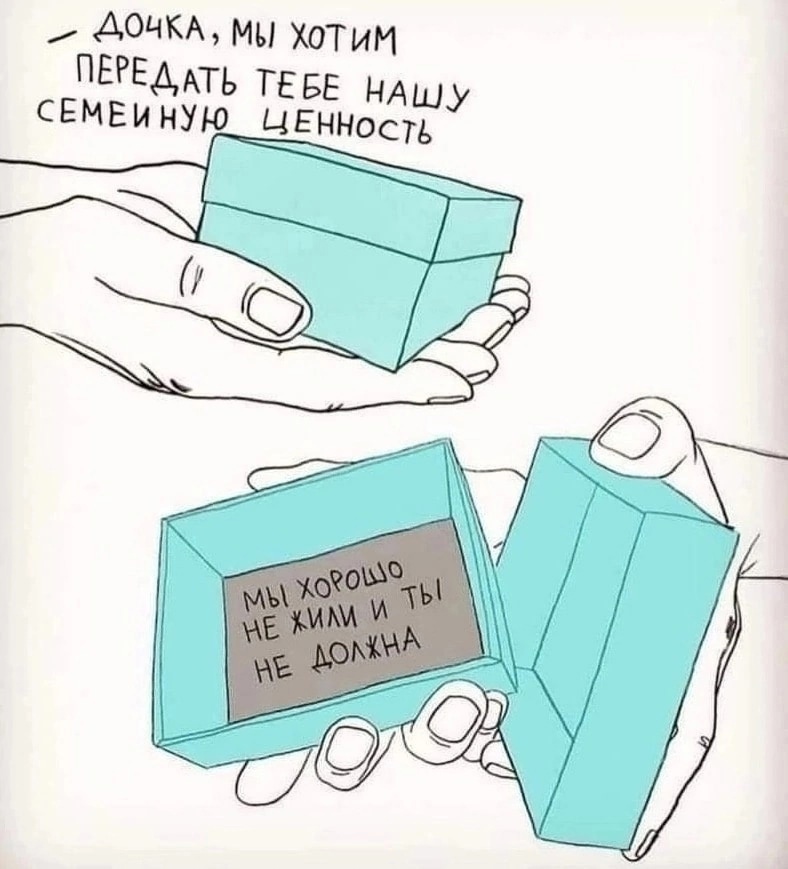 – ДОЧКА, МЫ ХОТИМ
ПЕРЕДАТЬ ТЕБЕ НАШУ
СЕМЕИНУЮ ЦЕННОСТЬ
МЫ ХОРОШО
НЕ ЖИЛИ И ТЫ
НЕ ДОЛЖНА